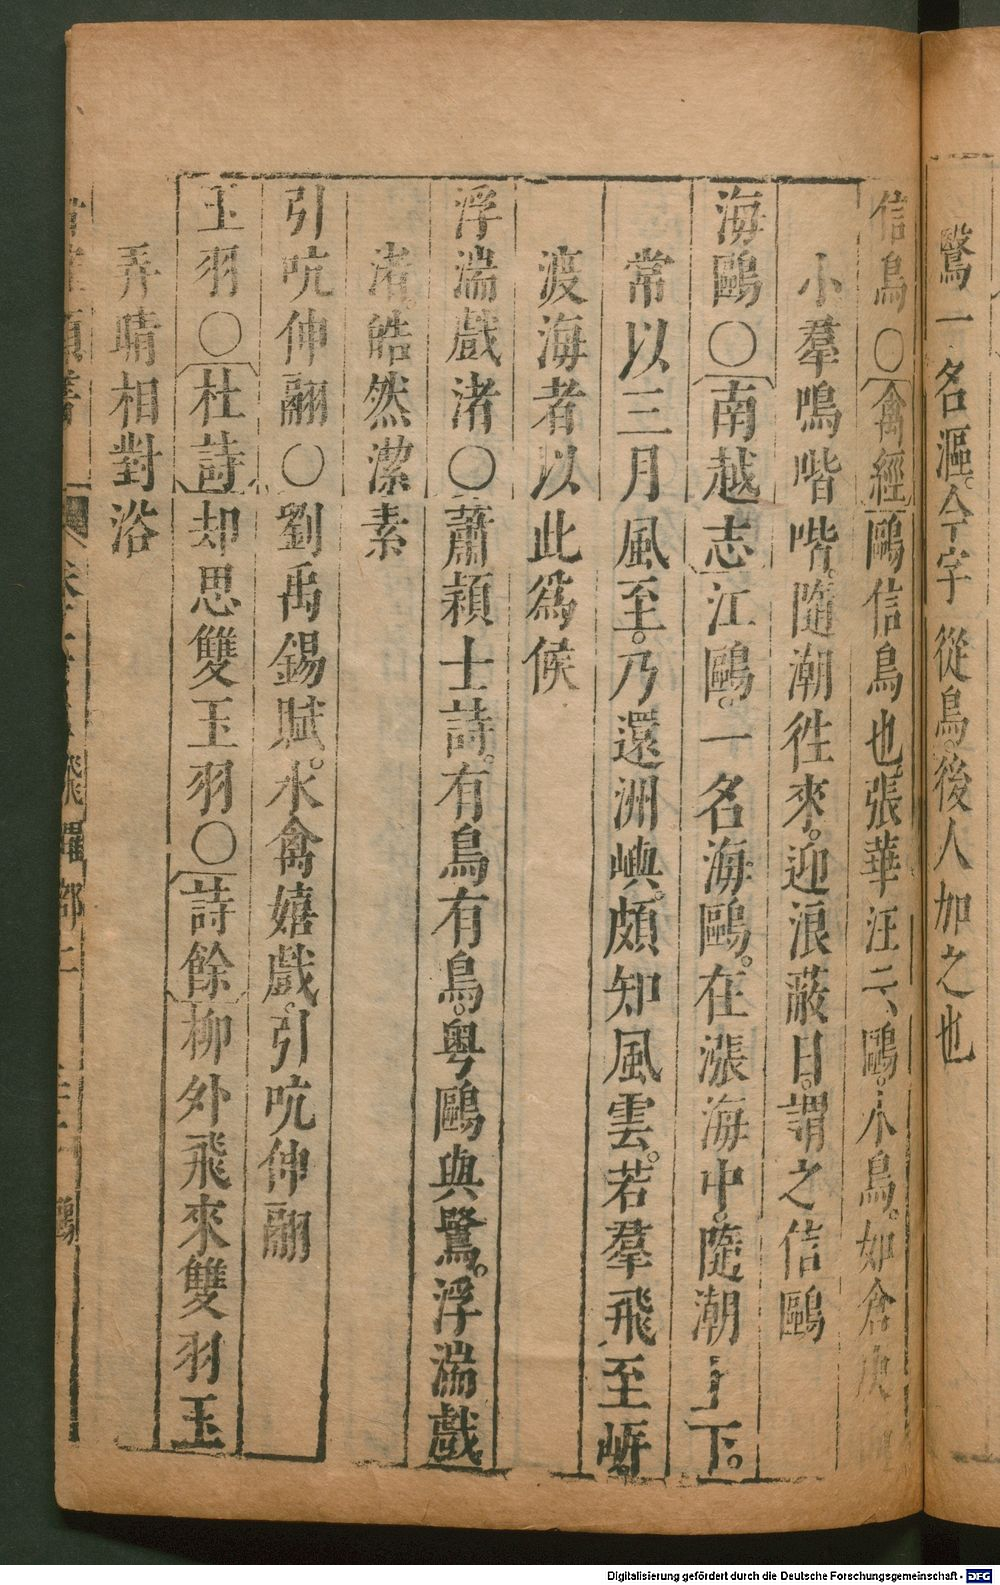 鷖一名漚。今字從鳥。後人加之也
信鳥〇禽經鷗信鳥也張華注云鷗。小鳥。如倉庚
小羣鳴喈喈。隨潮徃來。迎浪蔽日。謂之信鷗
海鷗〇南越志江鷗。一名海鷗。在漲海中。隨潮上下。
常以三月風至。乃還洲嶼。頗知風雲。若羣飛至岸
渡海者以此爲候
浮湍戲渚〇蕭穎士詩。有鳥有鳥。粤鷗與鷺。浮湍戲
渚。皓然潔素
引吭伸翮〇劉禹錫賦。水禽嬉戲。引吭伸翮
玉羽〇杜詩却思雙玉羽〇詩餘柳外飛來雙羽玉
弄晴相對浴
飛躍部二
Digitalisierung gefördert durch die Deutsche Forschungsgemeinschaft - DFG